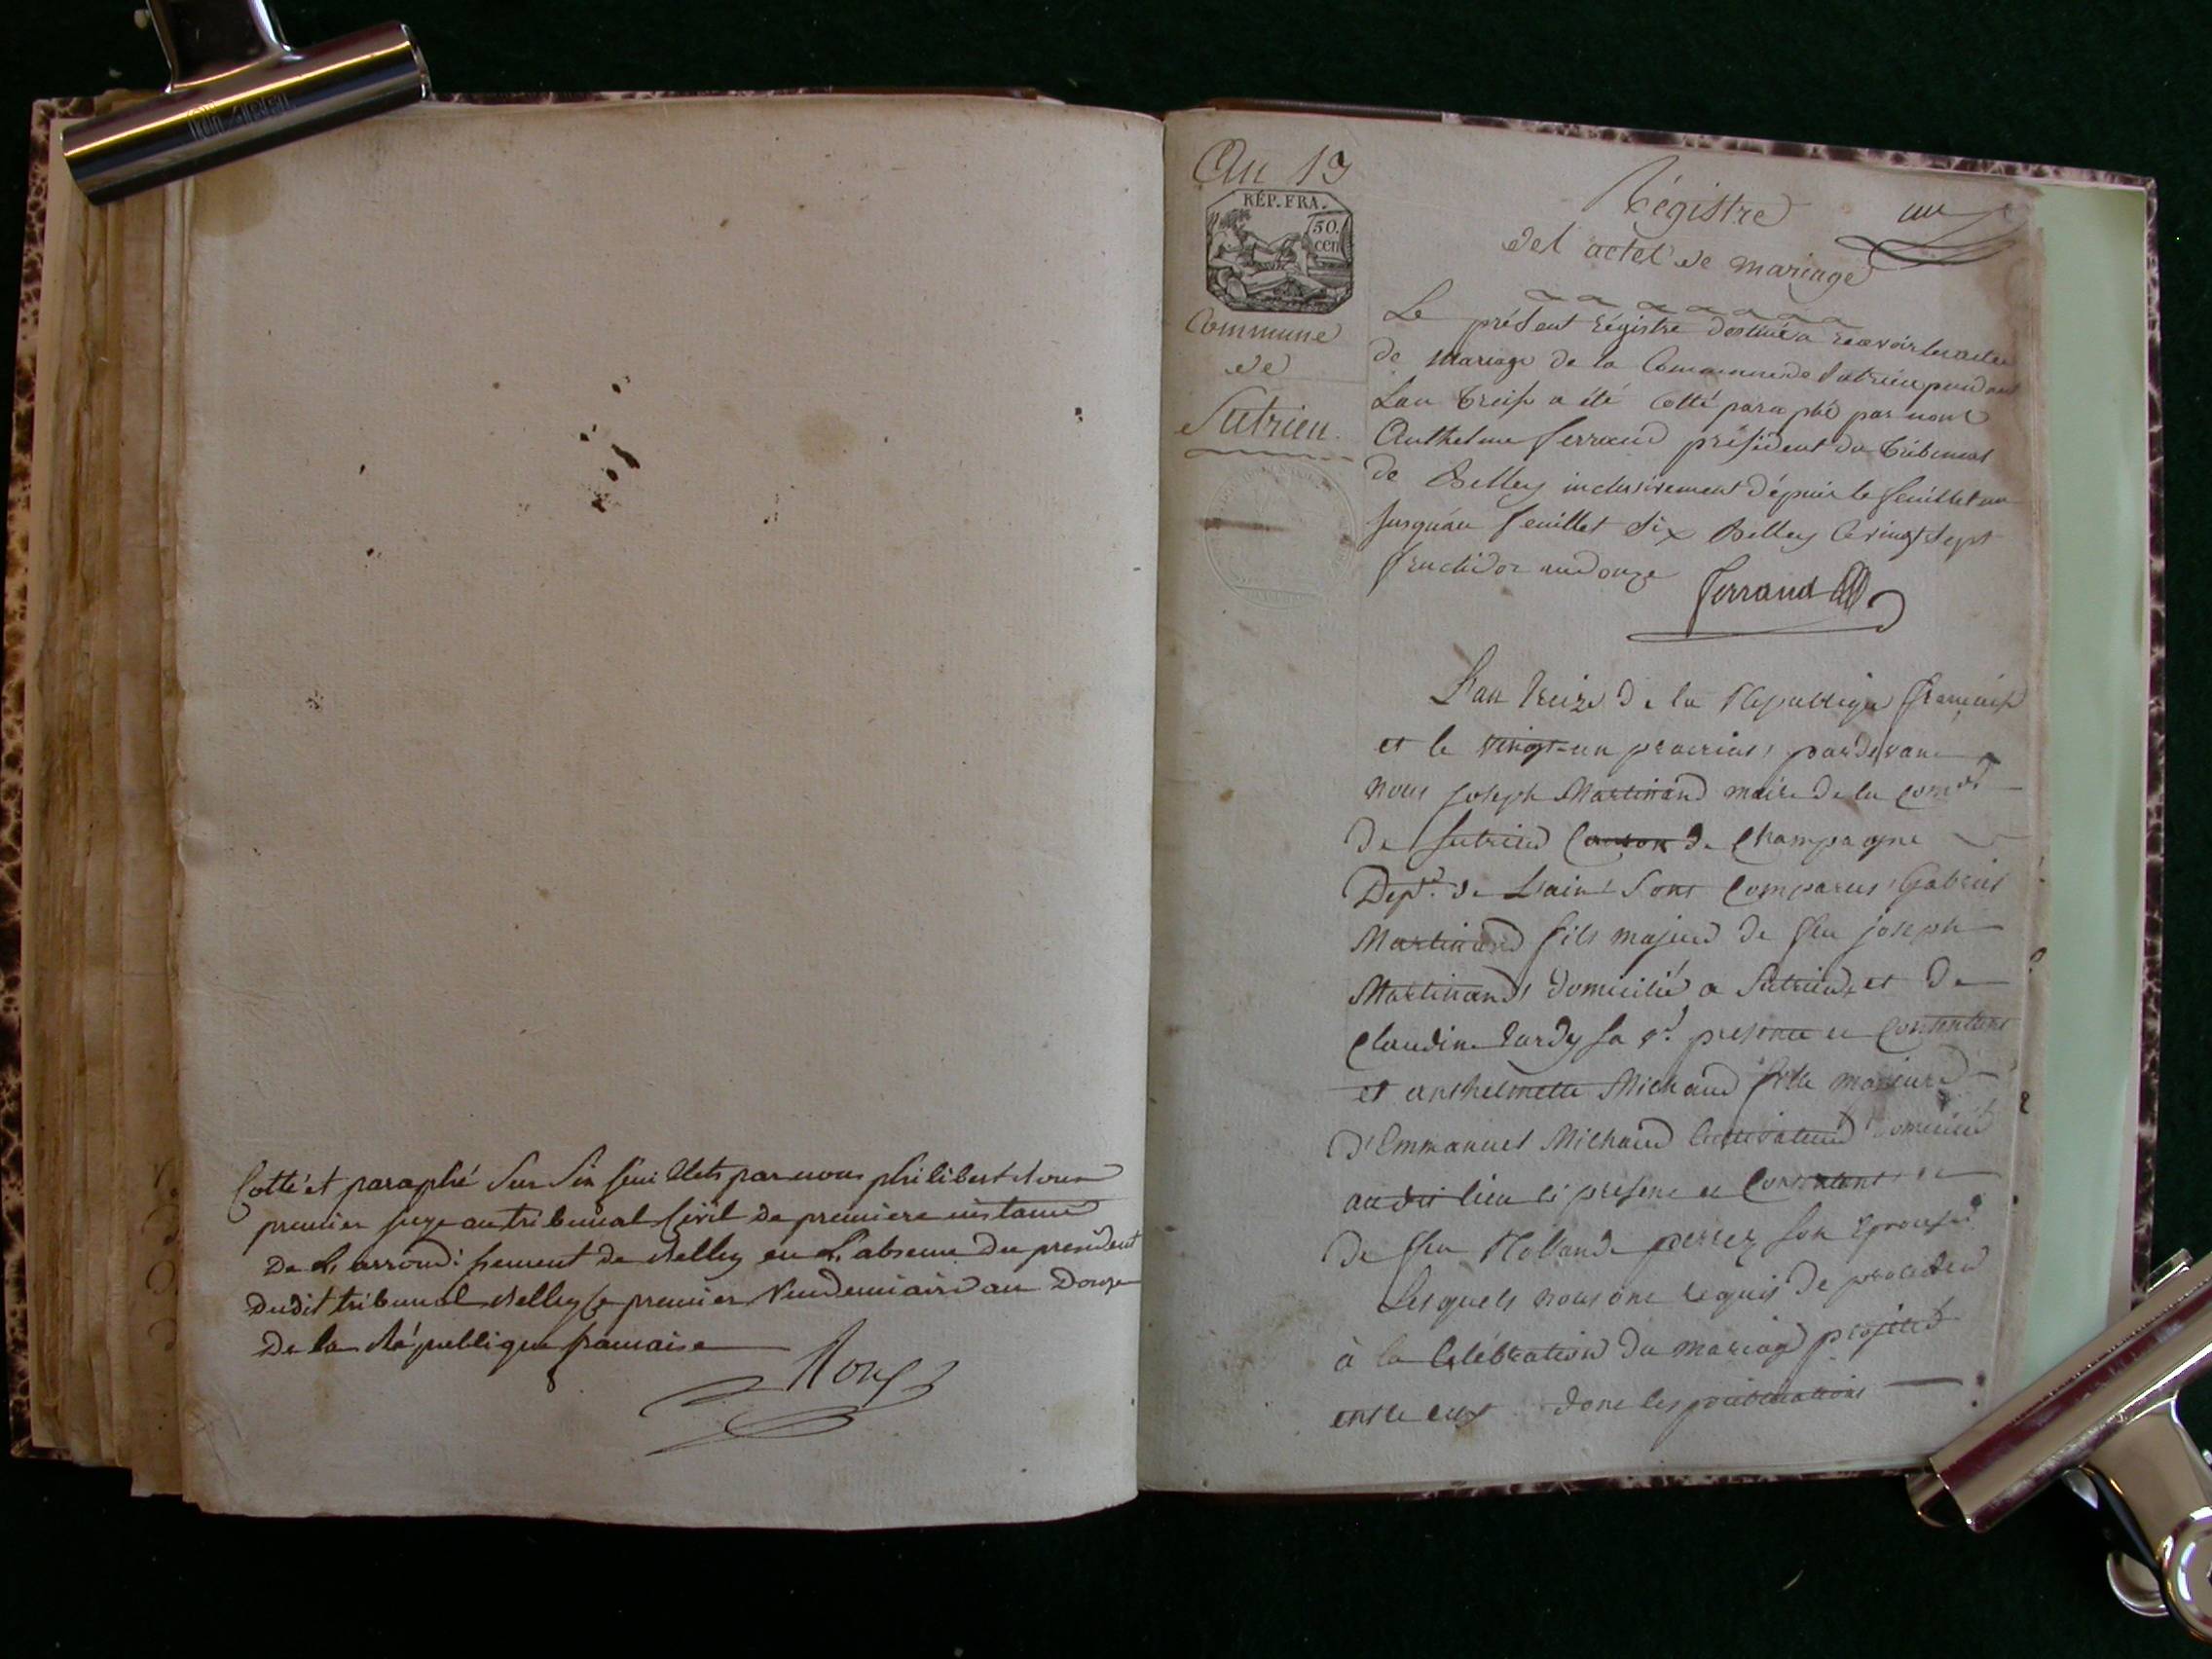 Cotté et paraphé Sur Six feuillets par nous philibert
premier juge au tribunal Civil de premiere instance
De L'arrondissement de Belley en L'absence Du president
Dudit tribunal Belley le premier Vendemiaire an Douze
De la République francaise
An 13
RÉP. FRA.
50.
cen
Commune
de
Sutrieu
Régistre
des actes de mariage
un
Le présent régistre destiné a recevoir les actes
de Mariage de la Commune de Sutrieu pendant
Lan treise a été Cotté paraphé par nous
Anthelme ferrand président du tribunal
de Belley inclusivement dépuis le feuillet un
Jusqu'au feuillet Six Belley le vingt Sept
fructidor an douze
ferrand
L'an treize De la Republique francaise
et le vingt-un prairial, pardevant
nous joseph Martinand maire De la Com.ne
De Sutrieu Canton De Champagne
Dep.t De L'ain, Sont Comparus, Gabriel
Martinand fils majeur De feu joseph
Martinand, domicilié a Sutrieu, et De
Claudine tardy sa v.e presente et Consentante
et anthelmette Michaud fille majeure
D'Emmanuel Michaud Cultivateur domicilié
audit lieu ci présent et Consentant, et
De feu Rollande perrez son Epouse
Lesquels nous ont requis De procéder
à la Célébration Du mariage projetté
entre eux dont les publications